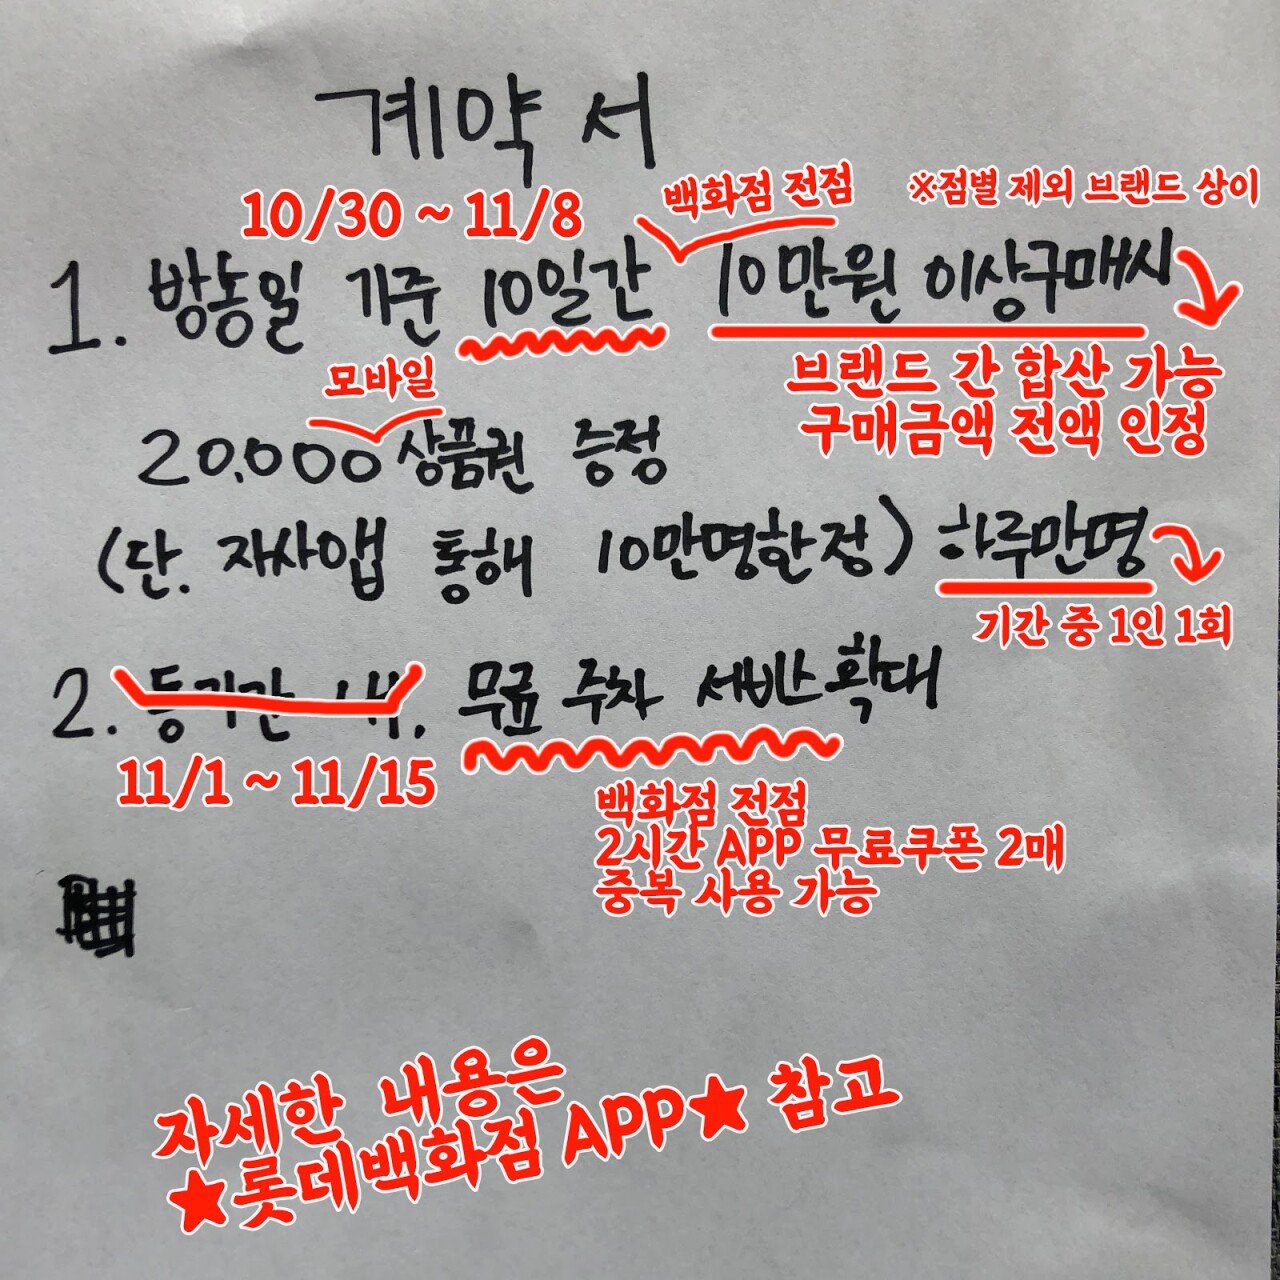 계약서
10/30 ~ 11/8
백화점 전점
※점별 제외 브랜드 상이
1. 방송일 기준 10일간 10만원 이상구매시
브랜드 간 합산 가능
구매금액 전액 인정
모바일
20,000 상품권 증정
(단. 자사앱 통해 10만명한정) 하루만명
기간 중 1인 1회
2. 동기간 내. 무료 주차 서비스 확대
11/1 ~ 11/15
백화점 전점
2시간 APP 무료쿠폰 2매
중복 사용 가능
자세한 내용은
★롯데백화점 APP★ 참고